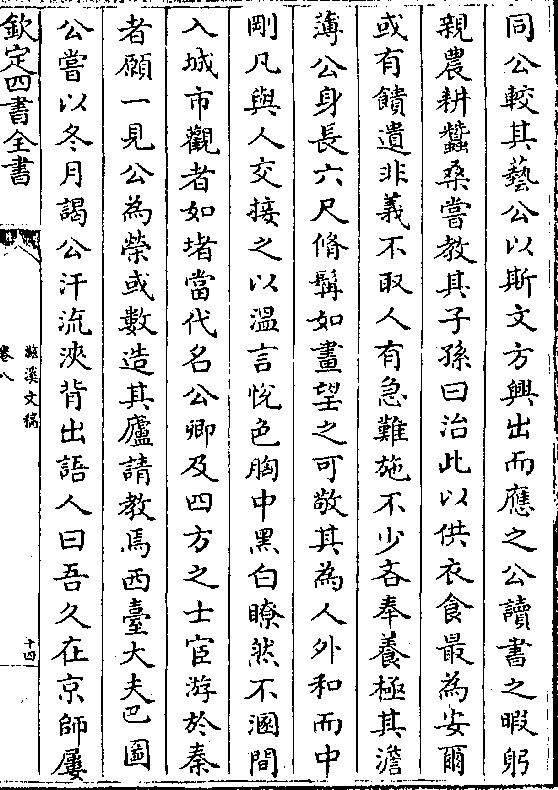 同公較其藝公以斯文方興出而應之公讀書之暇躬
親農耕蠶桑嘗教其子孫曰治此以供衣食最為安爾
或有饋遺非義不取人有急難施不少吝奉養極其澹
薄公身長六尺脩髯如畫望之可敬其為人外和而中
剛凡與人交接之以溫言悅色胸中黑白瞭然不溷間
入城市觀者如堵當代名公卿及四方之士宦游於秦
者願一見公為榮或數造其廬請教焉西臺大夫巴圖
公嘗以冬月謁公汗流浹背出語人曰吾久在京師屢
欽定四庫全書
滋溪文稿
卷八
十四